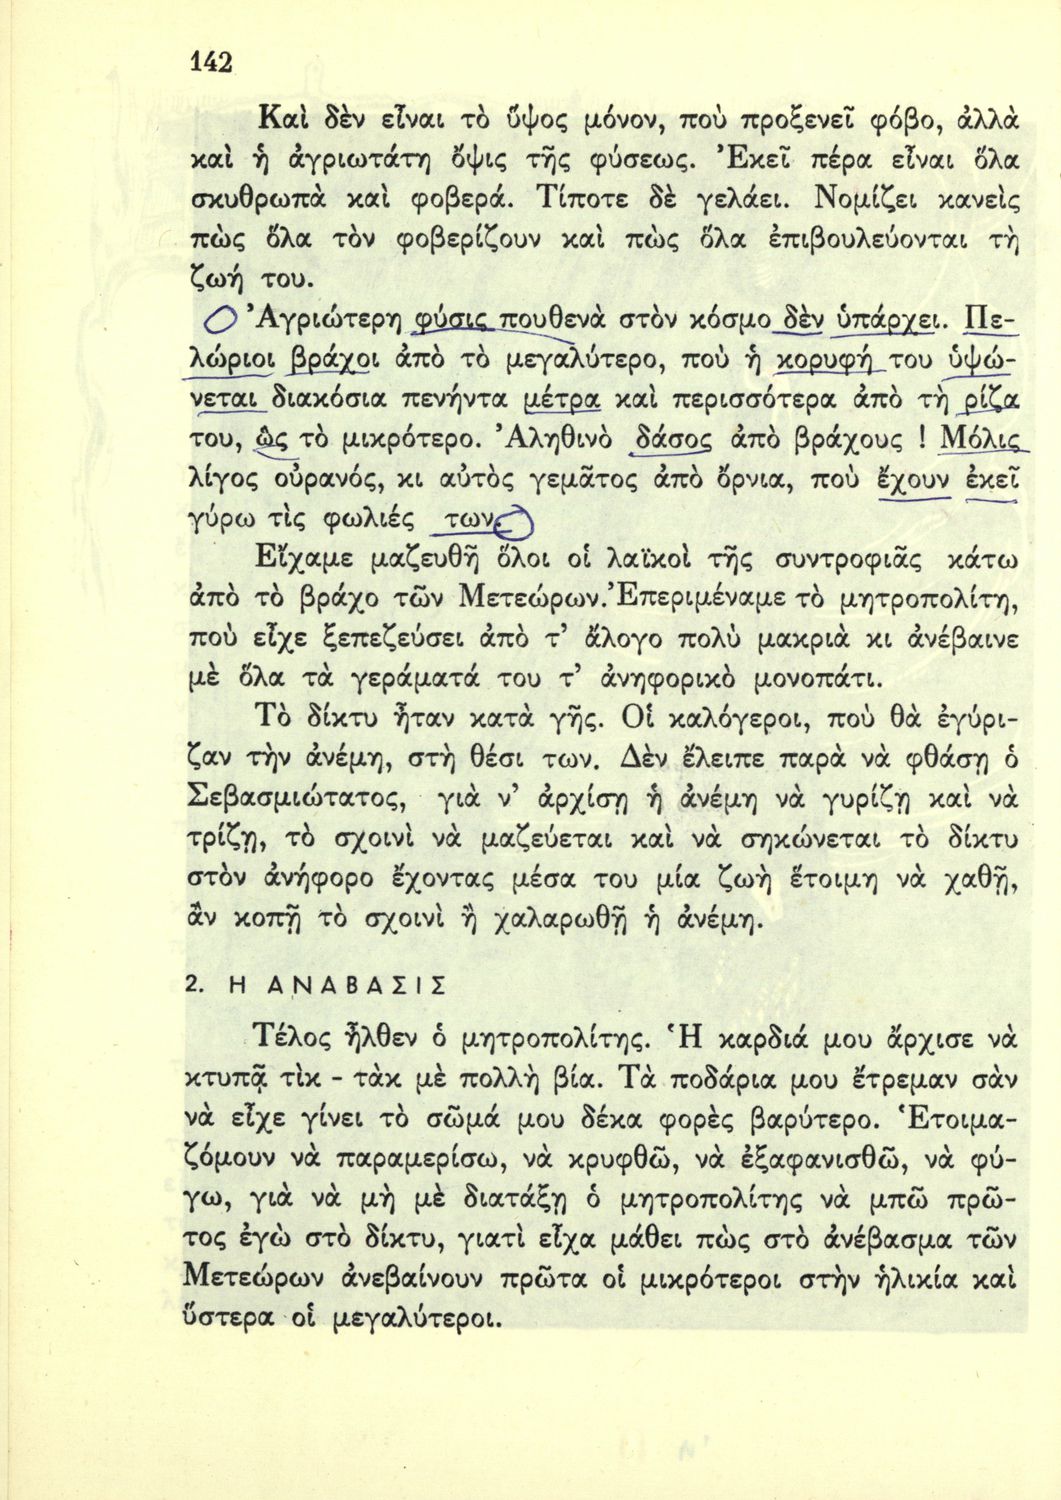 142
Καὶ δὲν εἶναι τὸ ὕψος μόνον, ποὺ προξενεῖ φόβο, ἀλλὰ
καὶ ἡ ἀγριωτάτη ὄψις τῆς φύσεως. Ἐκεῖ πέρα εἶναι ὅλα
σκυθρωπὰ καὶ φοβερά. Τίποτε δὲ γελάει. Νομίζει κανεὶς
πὼς ὅλα τὸν φοβερίζουν καὶ πὼς ὅλα ἐπιβουλεύονται τὴ
ζωή του.
Ἀγριώτερη φύσις πουθενὰ στὸν κόσμο δὲν ὑπάρχει. Πε-
λώριοι βράχοι ἀπὸ τὸ μεγαλύτερο, ποὺ ἡ κορυφή του ὑψώ-
νεται διακόσια πενήντα μέτρα καὶ περισσότερα ἀπὸ τὴ ρίζα
του, ὣς τὸ μικρότερο. Ἀληθινὸ δάσος ἀπὸ βράχους ! Μόλις
λίγος οὐρανός, κι αὐτὸς γεμᾶτος ἀπὸ ὄρνια, ποὺ ἔχουν ἐκεῖ
γύρω τὶς φωλιές των.
Εἴχαμε μαζευθῆ ὅλοι οἱ λαϊκοὶ τῆς συντροφιᾶς κάτω
ἀπὸ τὸ βράχο τῶν Μετεώρων. Ἐπεριμέναμε τὸ μητροπολίτη,
ποὺ εἶχε ξεπεζεύσει ἀπὸ τ’ ἄλογο πολὺ μακριὰ κι ἀνέβαινε
μὲ ὅλα τὰ γεράματά του τ’ ἀνηφορικὸ μονοπάτι.
Τὸ δίκτυ ἦταν κατὰ γῆς. Οἱ καλόγεροι, ποὺ θὰ ἐγύρι-
ζαν τὴν ἀνέμη, στὴ θέσι των. Δὲν ἔλειπε παρὰ νὰ φθάσῃ ὁ
Σεβασμιώτατος, γιὰ ν’ ἀρχίσῃ ἡ ἀνέμη νὰ γυρίζῃ καὶ νὰ
τρίζῃ, τὸ σχοινὶ νὰ μαζεύεται καὶ νὰ σηκώνεται τὸ δίκτυ
στὸν ἀνήφορο ἔχοντας μέσα του μία ζωὴ ἕτοιμη νὰ χαθῇ,
ἂν κοπῇ τὸ σχοινὶ ἢ χαλαρωθῇ ἡ ἀνέμη.
2. Η ΑΝΑΒΑΣΙΣ
Τέλος ἦλθεν ὁ μητροπολίτης. Ἡ καρδιά μου ἄρχισε νὰ
κτυπᾷ τὶκ - τὰκ μὲ πολλὴ βία. Τὰ ποδάρια μου ἔτρεμαν σὰν
νὰ εἶχε γίνει τὸ σῶμά μου δέκα φορὲς βαρύτερο. Ἑτοιμα-
ζόμουν νὰ παραμερίσω, νὰ κρυφθῶ, νὰ ἐξαφανισθῶ, νὰ φύ-
γω, γιὰ νὰ μὴ μὲ διατάξῃ ὁ μητροπολίτης νὰ μπῶ πρῶ-
τος ἐγὼ στὸ δίκτυ, γιατὶ εἶχα μάθει πὼς στὸ ἀνέβασμα τῶν
Μετεώρων ἀνεβαίνουν πρῶτα οἱ μικρότεροι στὴν ἡλικία καὶ
ὕστερα οἱ μεγαλύτεροι.